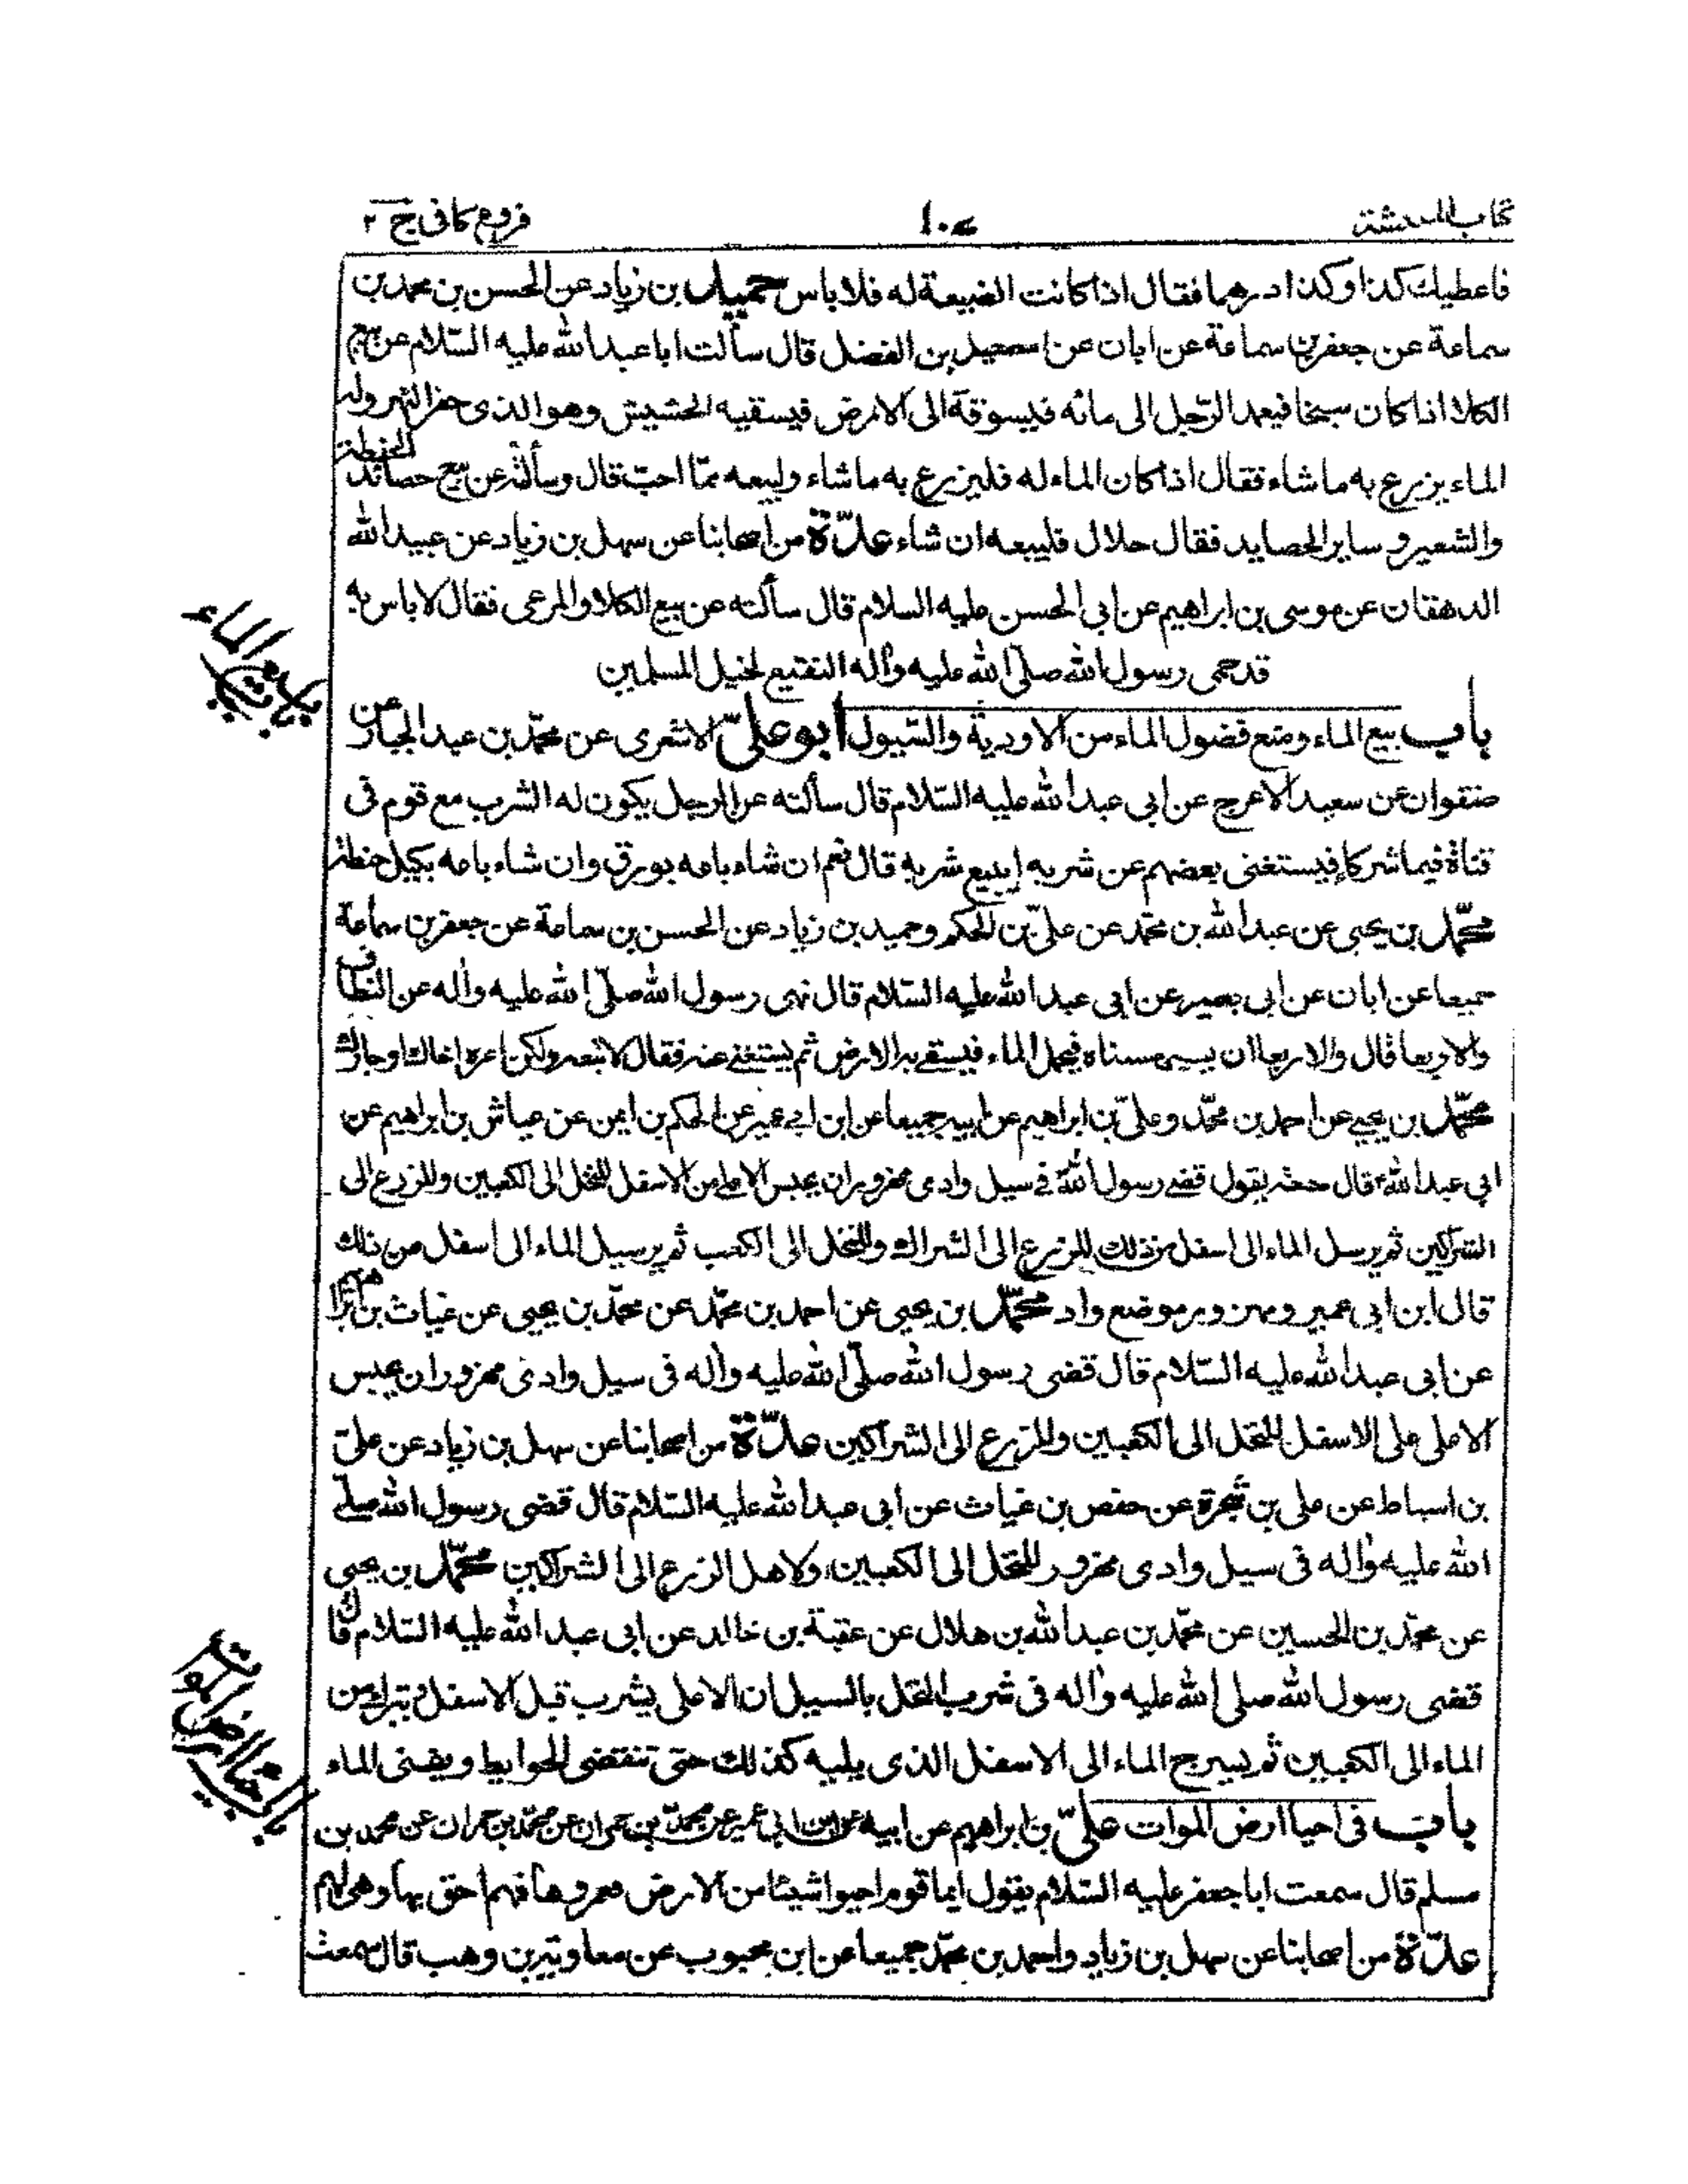 كتاب المعيشة
فروع كافى ج ٢
فاعطيك كذا وكذا درهما فقال اذا كانت الضيعة له فلا باس حميد بن زياد عن الحسن بن محمد بن
سماعة عن جعفر بن سماعة عن ابان عن اسمعيل بن الفضل قال سألت ابا عبد الله عليه السّلام عن بيع
الكلاء اذا كان سيحا فيعمد الرّجل الى مائه فيسوقه الى الارض فيسقيه الحشيش وهو الذى حفر النهر وله
الماء يزرع به ما شاء فقال اذا كان الماء له فليزرع به ما شاء وليبعه بما احبّ قال وسألته عن بيع حصائد الحنطة
والشعير و ساير الحصايد فقال حلال فليبعه ان شاء عدّة من اصحابنا عن سهل بن زياد عن عبيد الله
الدهقان عن موسى بن ابراهيم عن ابى الحسن عليه السلام قال سألته عن بيع الكلاء والمرعى فقال لا باس به
قد حمى رسول الله صلّى الله عليه وآله النقيع لخيل المسلمين
باب بيع الماء ومنع فضول الماء من الاودية والسّيول ابو علىّ الاشعرى عن محمّد بن عبد الجبار عن
صفوان عن سعيد الاعرج عن ابى عبد الله عليه السّلام قال سألته عن الرجل يكون له الشرب مع قوم فى
قناة فيها شركاء فيستغنى بعضهم عن شربه ايبيع شربه قال نعم ان شاء باعه بورق وان شاء باعه بكيل حنطة
محمّد بن يحيى عن عبد الله بن محمّد عن علىّ بن الحكم وحميد بن زياد عن الحسن بن سماعة عن جعفر بن سماعة
جميعا عن ابان عن ابى بصير عن ابى عبد الله عليه السّلام قال نهى رسول الله صلّى الله عليه وآله عن النطاف
والاربعا قال والاربعا ان يسمى مسناة فيحمل الماء فيسقى به الارض ثم يستغنى عنه فقال لا تبعه ولكن اعره اخاك او جارك
محمّد بن يحيى عن احمد بن محمّد وعلىّ بن ابراهيم عن ابيه جميعا عن ابن ابى عمير عن الحكم بن ايمن عن غياث بن ابراهيم عن
ابى عبد الله ع قال سمعته يقول قضى رسول الله فى سيل وادى مهزور ان يحبس الاعلى من الاسفل للنخل الى الكعبين وللزرع الى
الشراكين ثم يرسل الماء الى اسفل من ذلك للزرع الى الشراك وللنخل الى الكعب ثم يرسل الماء الى اسفل من ذلك
قال ابن ابى عمير ومهزور موضع واد محمّد بن يحيى عن احمد بن محمّد عن محمّد بن يحيى عن غياث بن ابراهيم
عن ابى عبد الله عليه السّلام قال قضى رسول الله صلّى الله عليه وآله فى سيل وادى مهزور ان يحبس
الاعلى على الاسفل للنخل الى الكعبين وللزرع الى الشراكين عدّة من اصحابنا عن سهل بن زياد عن علىّ
بن اسباط عن على بن شجرة عن حفص بن غياث عن ابى عبد الله عليه السّلام قال قضى رسول الله صلّى
الله عليه وآله فى سيل وادى مهزور للنخل الى الكعبين ولاهل الزرع الى الشراكين محمّد بن يحيى
عن محمّد بن الحسين عن محمّد بن عبد الله بن هلال عن عقبة بن خالد عن ابى عبد الله عليه السّلام قال
قضى رسول الله صلى الله عليه وآله فى شرب النخل بالسيل ان الاعلى يشرب قبل الاسفل ويترك من
الماء الى الكعبين ثم يسرح الماء الى الاسفل الذى يليه كذلك حتى تنقضى الحوايط ويفنى الماء
باب فى احيا ارض الموات علىّ بن ابراهيم عن ابيه عن ابن ابى عمير عن محمّد بن حمران عن محمد بن
مسلم قال سمعت ابا جعفر عليه السّلام يقول ايما قوم احيوا شيئا من الارض وعمروها فهم احق بها وهى لهم
عدّة من اصحابنا عن سهل بن زياد واحمد بن محمّد جميعا عن ابن محبوب عن معاوية بن وهب قال سمعت